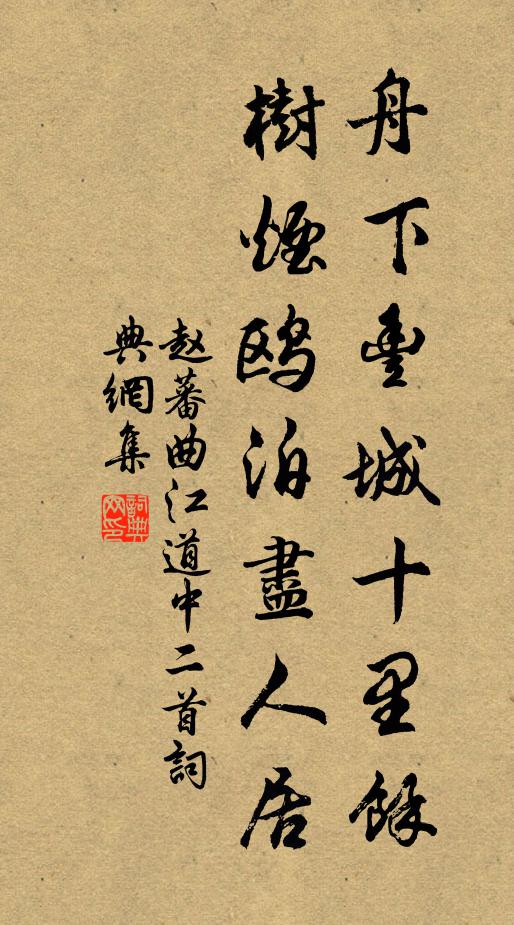 舟下豊城十里餘
樹煙鷗泊盡人居
赵蕃曲江道中二首詞
典網集
詞典網印